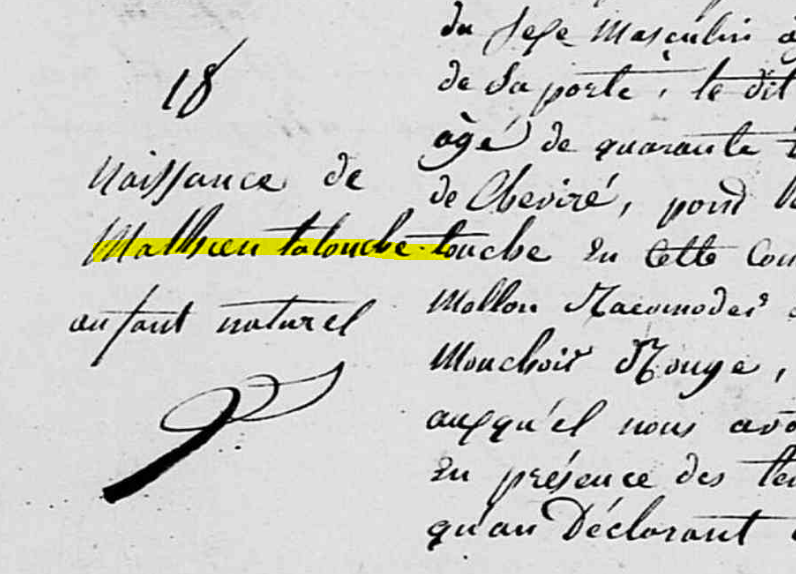 18
Naissance de
Mathieu talouche
enfant naturel
du sexe Masculin
de sa porte, le dit
âgé de quarante
de Cheviré, pond
touche en cette Com
Mellon Racomodeŕ
Mouchoir Rouge,
auxqu'el nous avo
en présence des tem
qu'au Déclarant